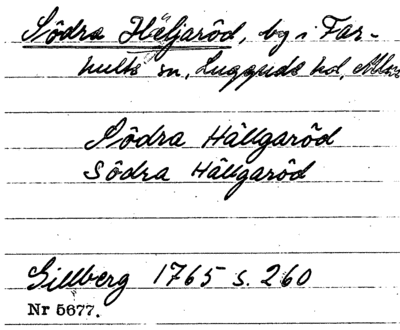 Södra Häljaröd, by i Far-
hults sn, Luggude hd, Mlm
Södra Hällgaröd
Södra Hällgaröd
Gillberg 1765 s. 260
Nr 5677.